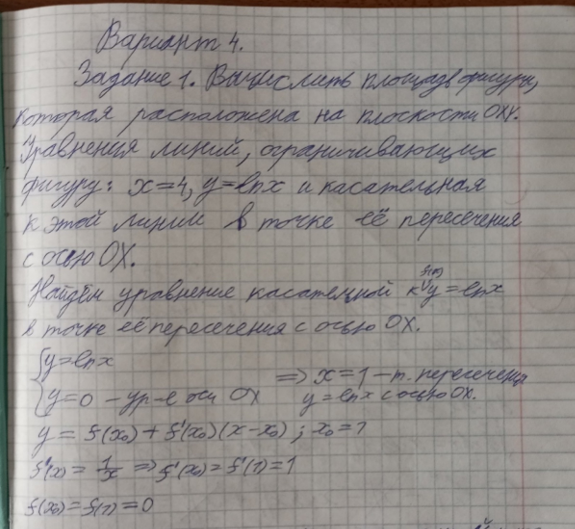 Вариант 4.
Задание 1. Вычислить площадь фигуры,
которая расположена на плоскости OXY.
Уравнения линий, ограничивающих
фигуру: x=4, y=lnx и касательная
к этой линии в точке её пересечения
с осью OX.
Найдём уравнение касательной к f(x) y=lnx
в точке её пересечения с осью OX.
{y=lnx
{y=0 – ур-е оси OX => x=1 – т. пересечения
y=lnx с осью OX.
y = f(x₀) + f'(x₀)(x-x₀); x₀=1
f'(x) = 1/x => f'(x₀) = f'(1) = 1
f(x₀) = f(1) = 0